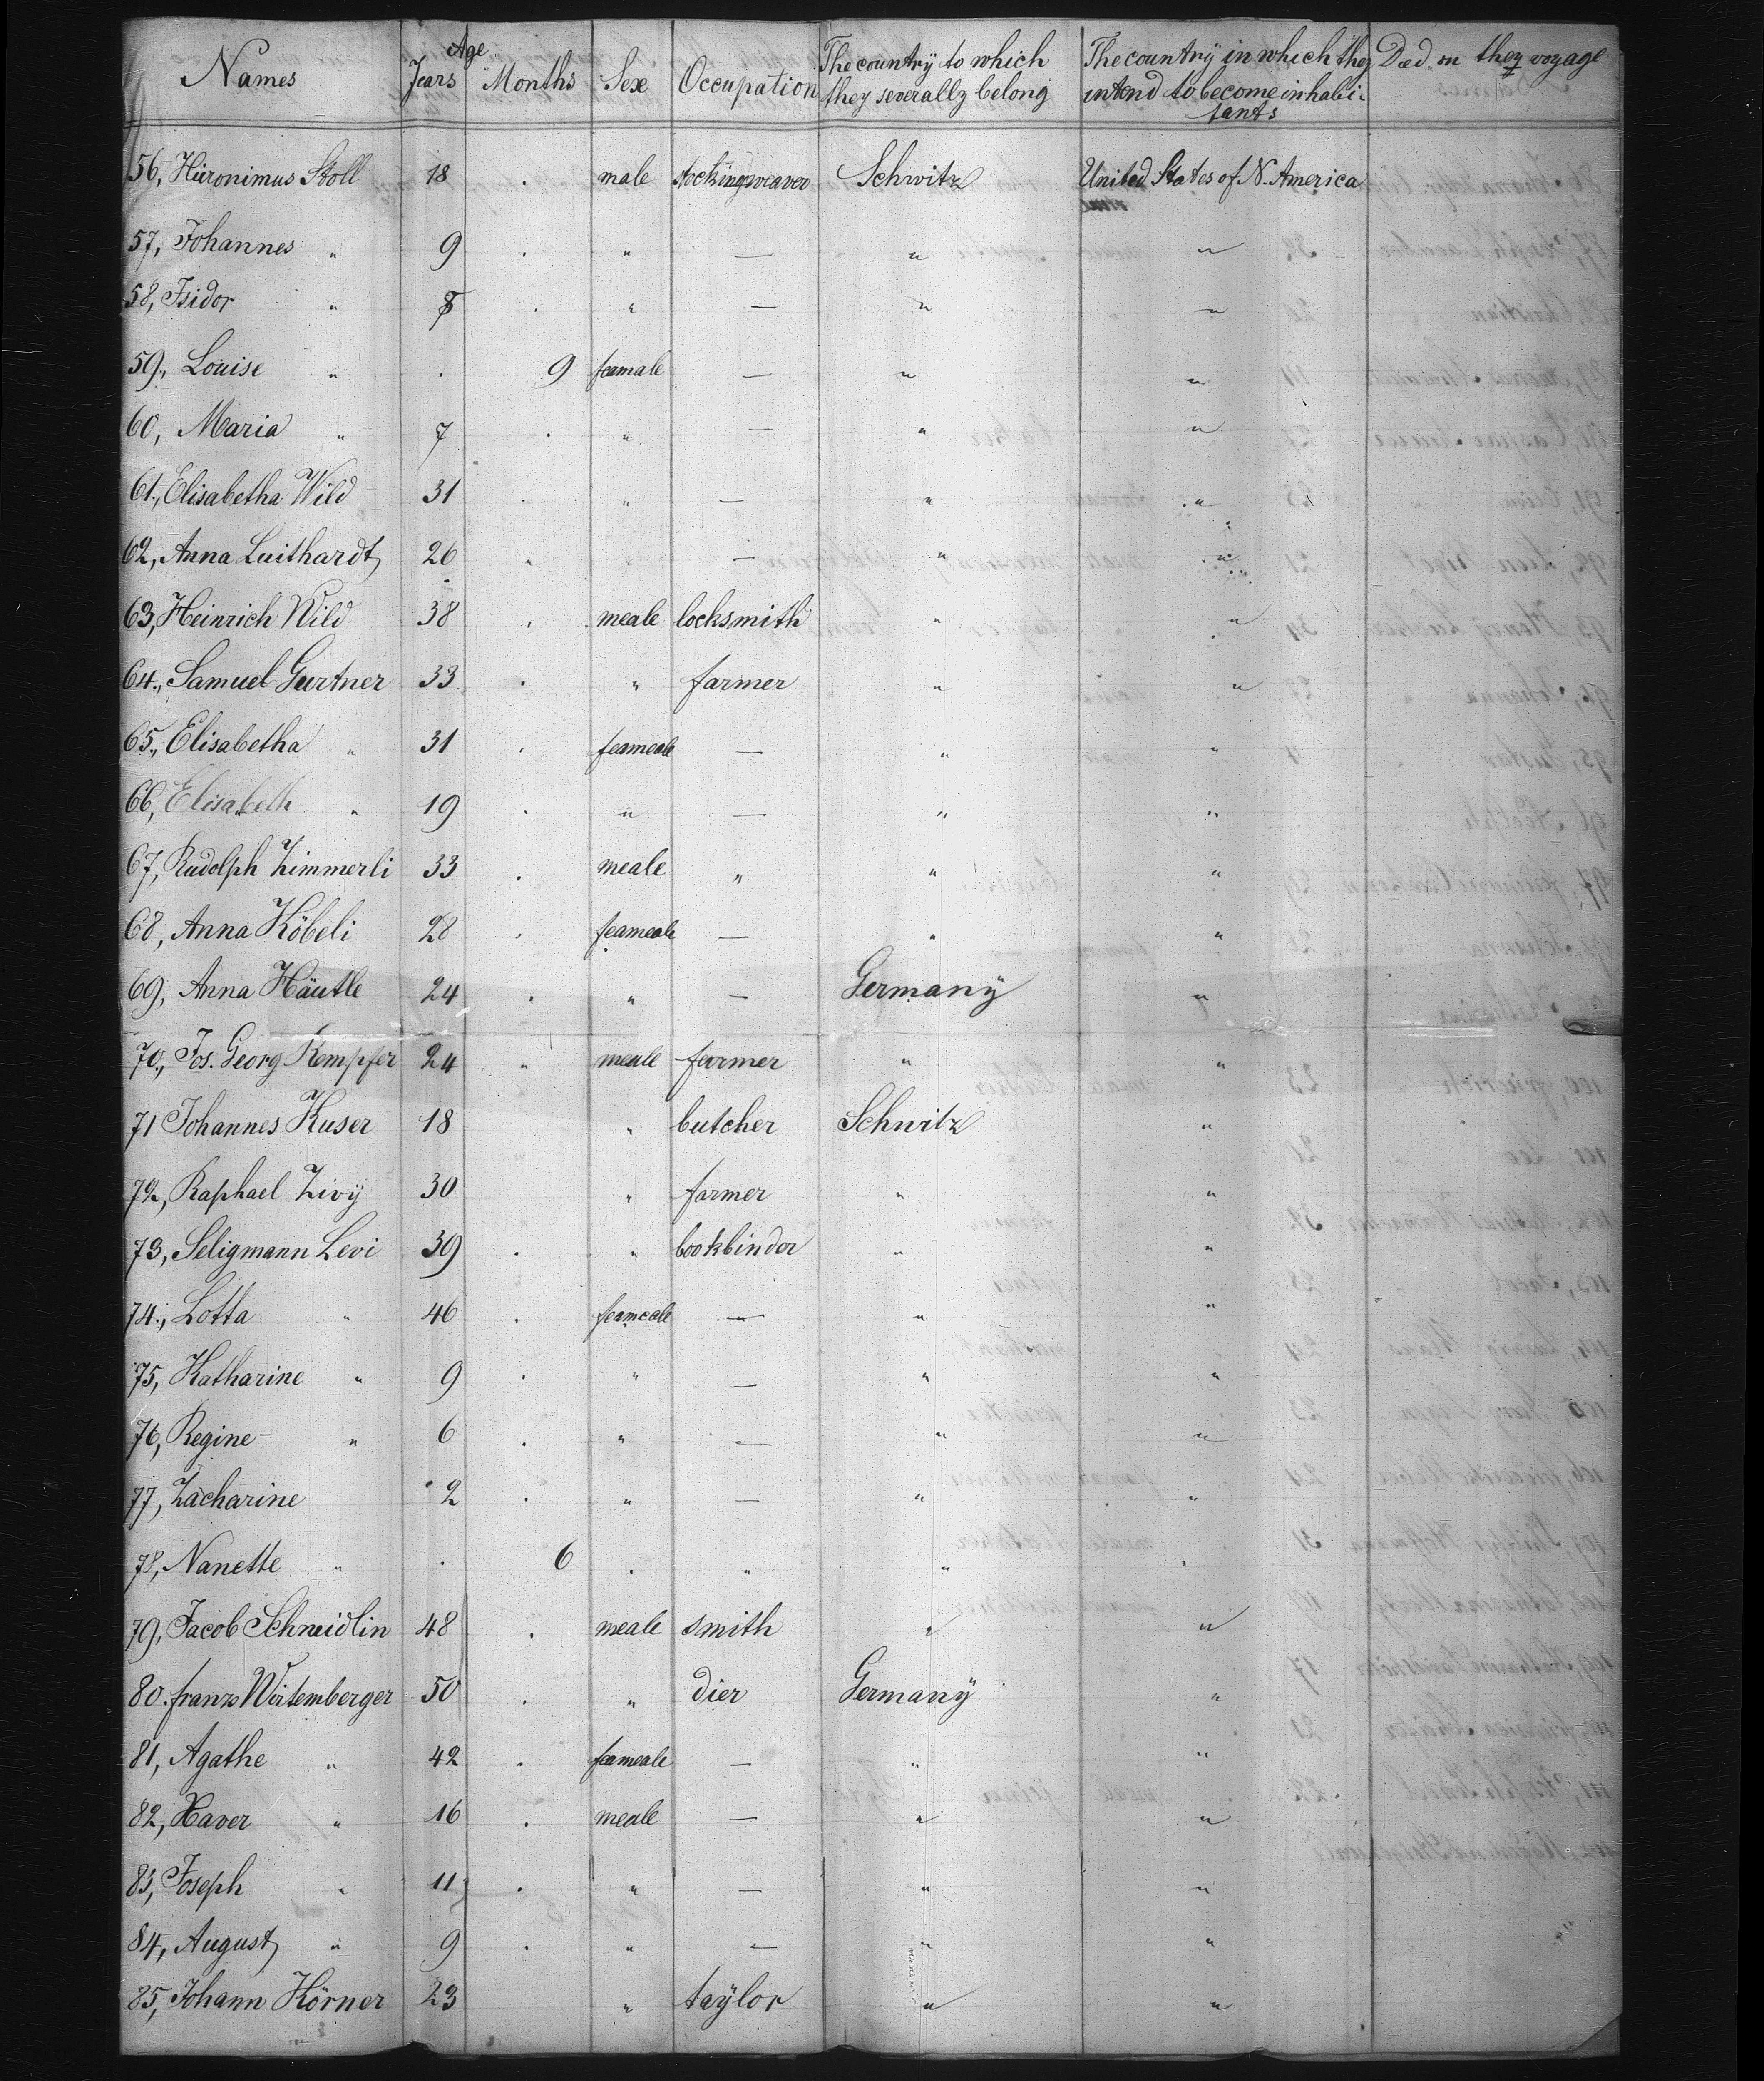 Names Age Years Months Sex Occupation The country to which they severally belong The country in which they intend to become inhabitants Died on they voyage
56, Hieronimus Stoll 18 . male stockingweaver Schwitz United States of N. America
57, Johannes " 9 . " — " "
58, Isidor " 8 . " — " "
59, Louise " . 9 feamale — " "
60, Maria " 7 . " — " "
61, Elisabetha Wild 31 . " — " "
62, Anna Luithardt 26 . " — " "
63, Heinrich Wild 38 . meale locksmith " "
64, Samuel Gurtner 33 . " farmer " "
65, Elisabetha " 31 . feameale — " "
66, Elisabeth " 19 . " — " "
67, Rudolph Zimmerli 33 . meale " " "
68, Anna Köbeli 28 . feameale — " "
69, Anna Häutle 24 . " — Germany "
70, Jos. Georg Kempfer 24 " meale farmer " "
71 Johannes Kuser 18 " butcher Schwitz "
72, Raphael Zivÿ 30 " farmer " "
73, Seligmann Levi 39 . " bookbinder " "
74, Lotta " 46 . feameale — " "
75, Katharine " 9 . " — " "
76, Regine " 6 . " — " "
77, Zacharine 2 . " — " "
78, Nanette " . 6 . " " "
79, Jacob Schneidlin 48 . meale smith " "
80. franz Wirtemberger 50 . " dier Germany "
81, Agathe " 42 . feameale — " "
82, Xaver " 16 . meale — " "
83, Joseph " 11 . " — " "
84, August " 9 . " — " "
85, Johann Körner 23 " taÿlor " "